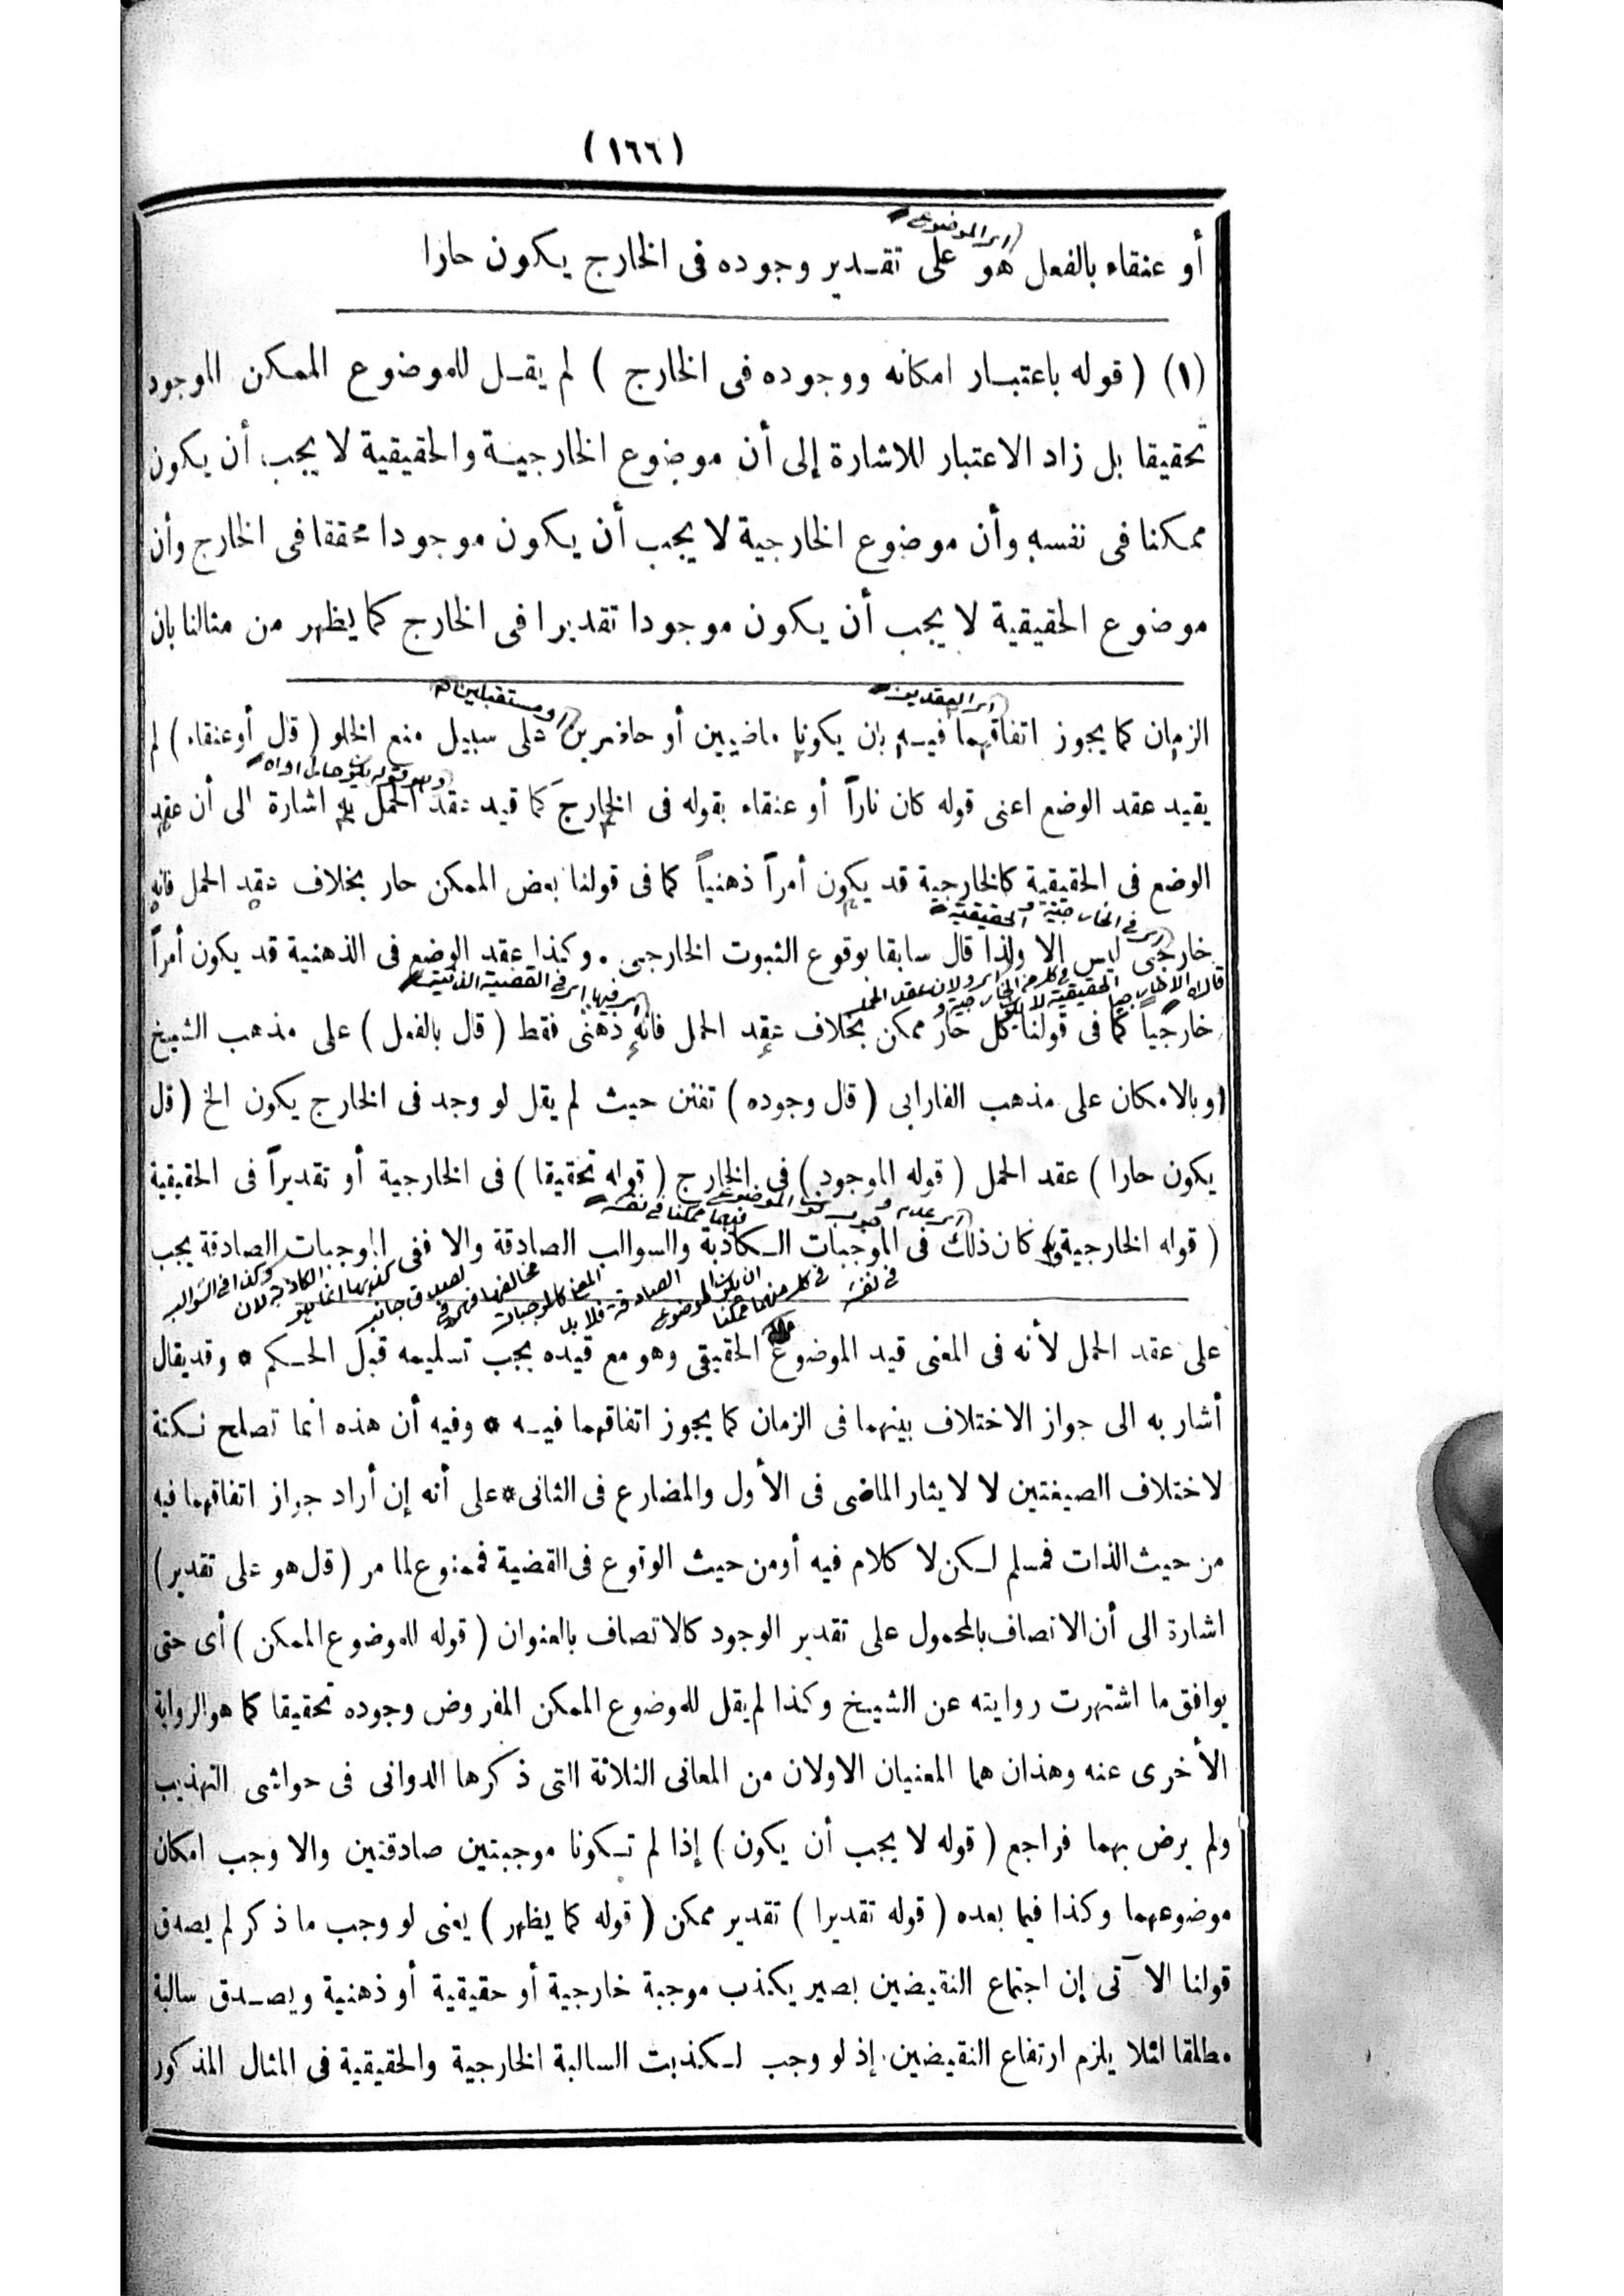 (١٦٦)
(اى الموضوع
أو عنقاء بالفعل هو على تقـدير وجوده فى الخارج يكون حارا
(١) ( قوله باعتبـار امكانه ووجوده فى الخارج ) لم يقـل للموضوع الممكن الموجود
تحقيقا بل زاد الاعتبار للاشارة إلى أن موضوع الخارجيـة والحقيقية لا يجب أن يكون
ممكنا فى نفسه وأن موضوع الخارجية لا يجب أن يكون موجودا محققا فى الخارج وأن
موضوع الحقيقية لا يجب أن يكون موجودا تقديرا فى الخارج كما يظهر من مثالنا بان
(اى العقدين (او مستقبلين
الزمان كما يجوز اتفاقهما فيـه بان يكونا ماضيين أو حاضرين على سبيل منع الخلو ( قال أو عنقاء ) لم
يقيد عقد الوضع اعنى قوله كان ناراً أو عنقاء بقوله فى الخارج كما قيد عقد الحمل به اشارة الى أن عقد
الوضع فى الحقيقية كالخارجية قد يكون أمراً ذهنياً كما فى قولنا بعض الممكن حار بخلاف عقد الحمل فانه
(اى فى الخارجية والحقيقية
خارجى ليس إلا ولذا قال سابقا بوقوع الثبوت الخارجى . وكذا عقد الوضع فى الذهنية قد يكون أمراً
اى فى القضية الذهنية
خارجياً كما فى قولنا كل حار ممكن بخلاف عقد الحمل فانه ذهنى فقط ( قال بالفعل ) على مذهب الشيخ
وبالامكان على مذهب الفارابى ( قال وجوده ) تفنن حيث لم يقل لو وجد فى الخارج يكون الخ ( قال
يكون حارا ) عقد الحمل ( قوله الموجود ) فى الخارج ( قوله تحقيقا ) فى الخارجية أو تقديراً فى الحقيقية
( قوله الخارجية ) كان ذلك فى الموجبات الـكاذبة والسوالب الصادقة والا ففى الموجبات الصادقة يجب
على عقد الحمل لأنه فى المعنى قيد الموضوع الحقيقى وهو مع قيده يجب تسليمه قبل الحـكم * وقد يقال
أشار به الى جواز الاختلاف بينهما فى الزمان كما يجوز اتفاقهما فيـه * وفيه أن هذه انما تصلح نـكتة
لاختلاف الصيغتين لا لايثار الماضى فى الأول والمضارع فى الثانى * على أنه إن أراد جواز اتفاقهما فيه
من حيث الذات فمسلم لـكن لا كلام فيه أو من حيث الوقوع فى القضية فممنوع لما مر ( قال هو على تقدير )
اشارة الى أن الاتصاف بالمحمول على تقدير الوجود كالاتصاف بالعنوان ( قوله للموضوع الممكن ) أى حتى
يوافق ما اشتهرت روايته عن الشيخ وكذا لم يقل للموضوع الممكن المفروض وجوده تحقيقا كما هو الرواية
الأخرى عنه وهذان هما المعنيان الاولان من المعانى الثلاثة التى ذكرها الدوانى فى حواشى التهذيب
ولم يرض بهما فراجع ( قوله لا يجب أن يكون ) إذا لم تـكونا موجبتين صادقتين والا وجب امكان
موضوعهما وكذا فيما بعده ( قوله تقديرا ) تقدير ممكن ( قوله كما يظهر ) يعنى لو وجب ما ذكر لم يصدق
قولنا الآتى إن اجتماع النقيضين بصير يكذب موجبة خارجية أو حقيقية أو ذهنية ويصـدق سالبة
مطلقا لئلا يلزم ارتفاع النقيضين . إذ لو وجب لـكذبت السالبة الخارجية والحقيقية فى المثال المذكور